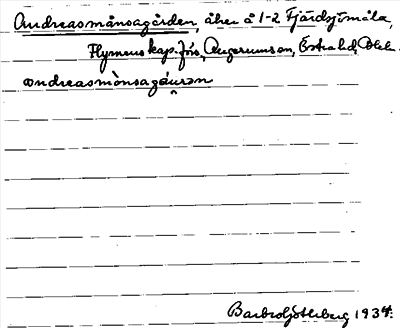 Andreasmånsagården, åker å 1-2 Fjärdsjömåla,
Flymens kap.förs, Augerums sn, Östra hd, Blek.
andreasmònsagáurən
Barbro Söderberg 1934.